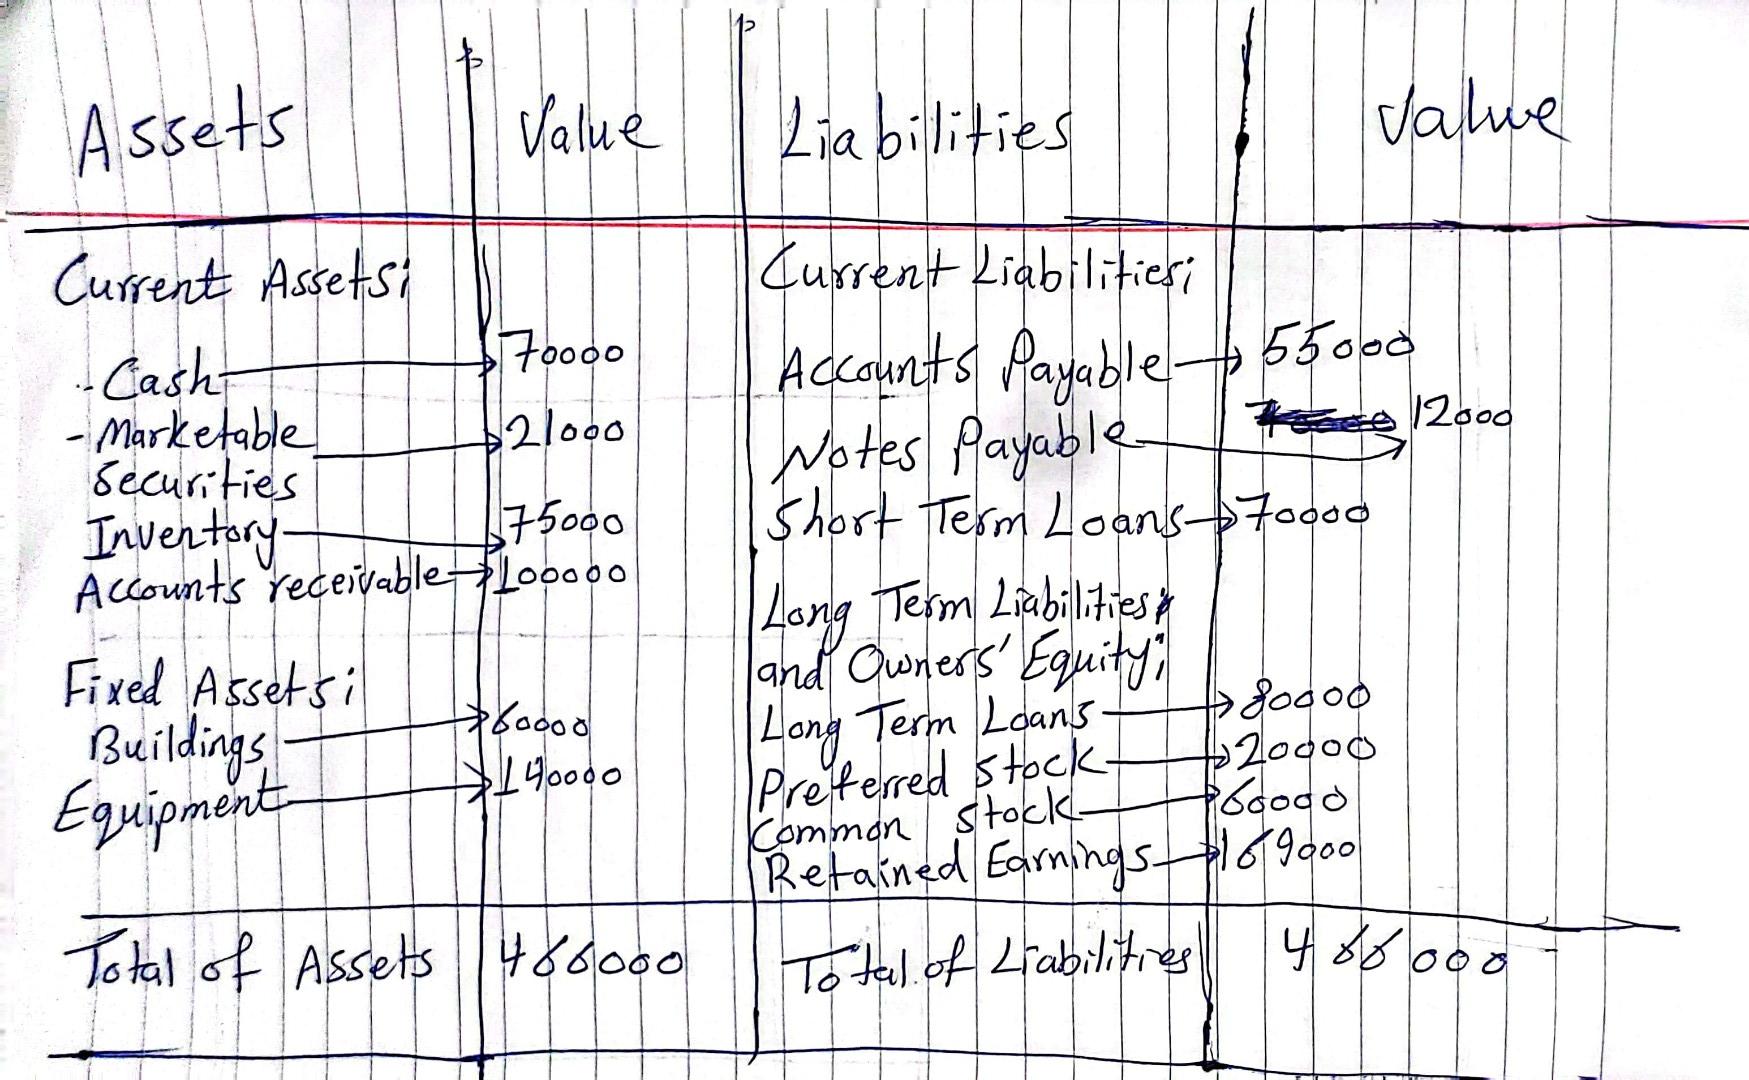 Assets Value Liabilities Value
Current Assets:
- Cash → 70000
- Marketable → 21000
Securities
Inventory → 75000
Accounts receivable → 100000
Fixed Assets:
Buildings → 60000
Equipment → 140000
Current Liabilities:
Accounts Payable → 55000
Notes Payable → 12000
Short Term Loans → 70000
Long Term Liabilities
and Owners' Equity:
Long Term Loans → 80000
Preferred stock → 20000
Common stock → 60000
Retained Earnings → 169000
Total of Assets 466000 Total of Liabilities 466000